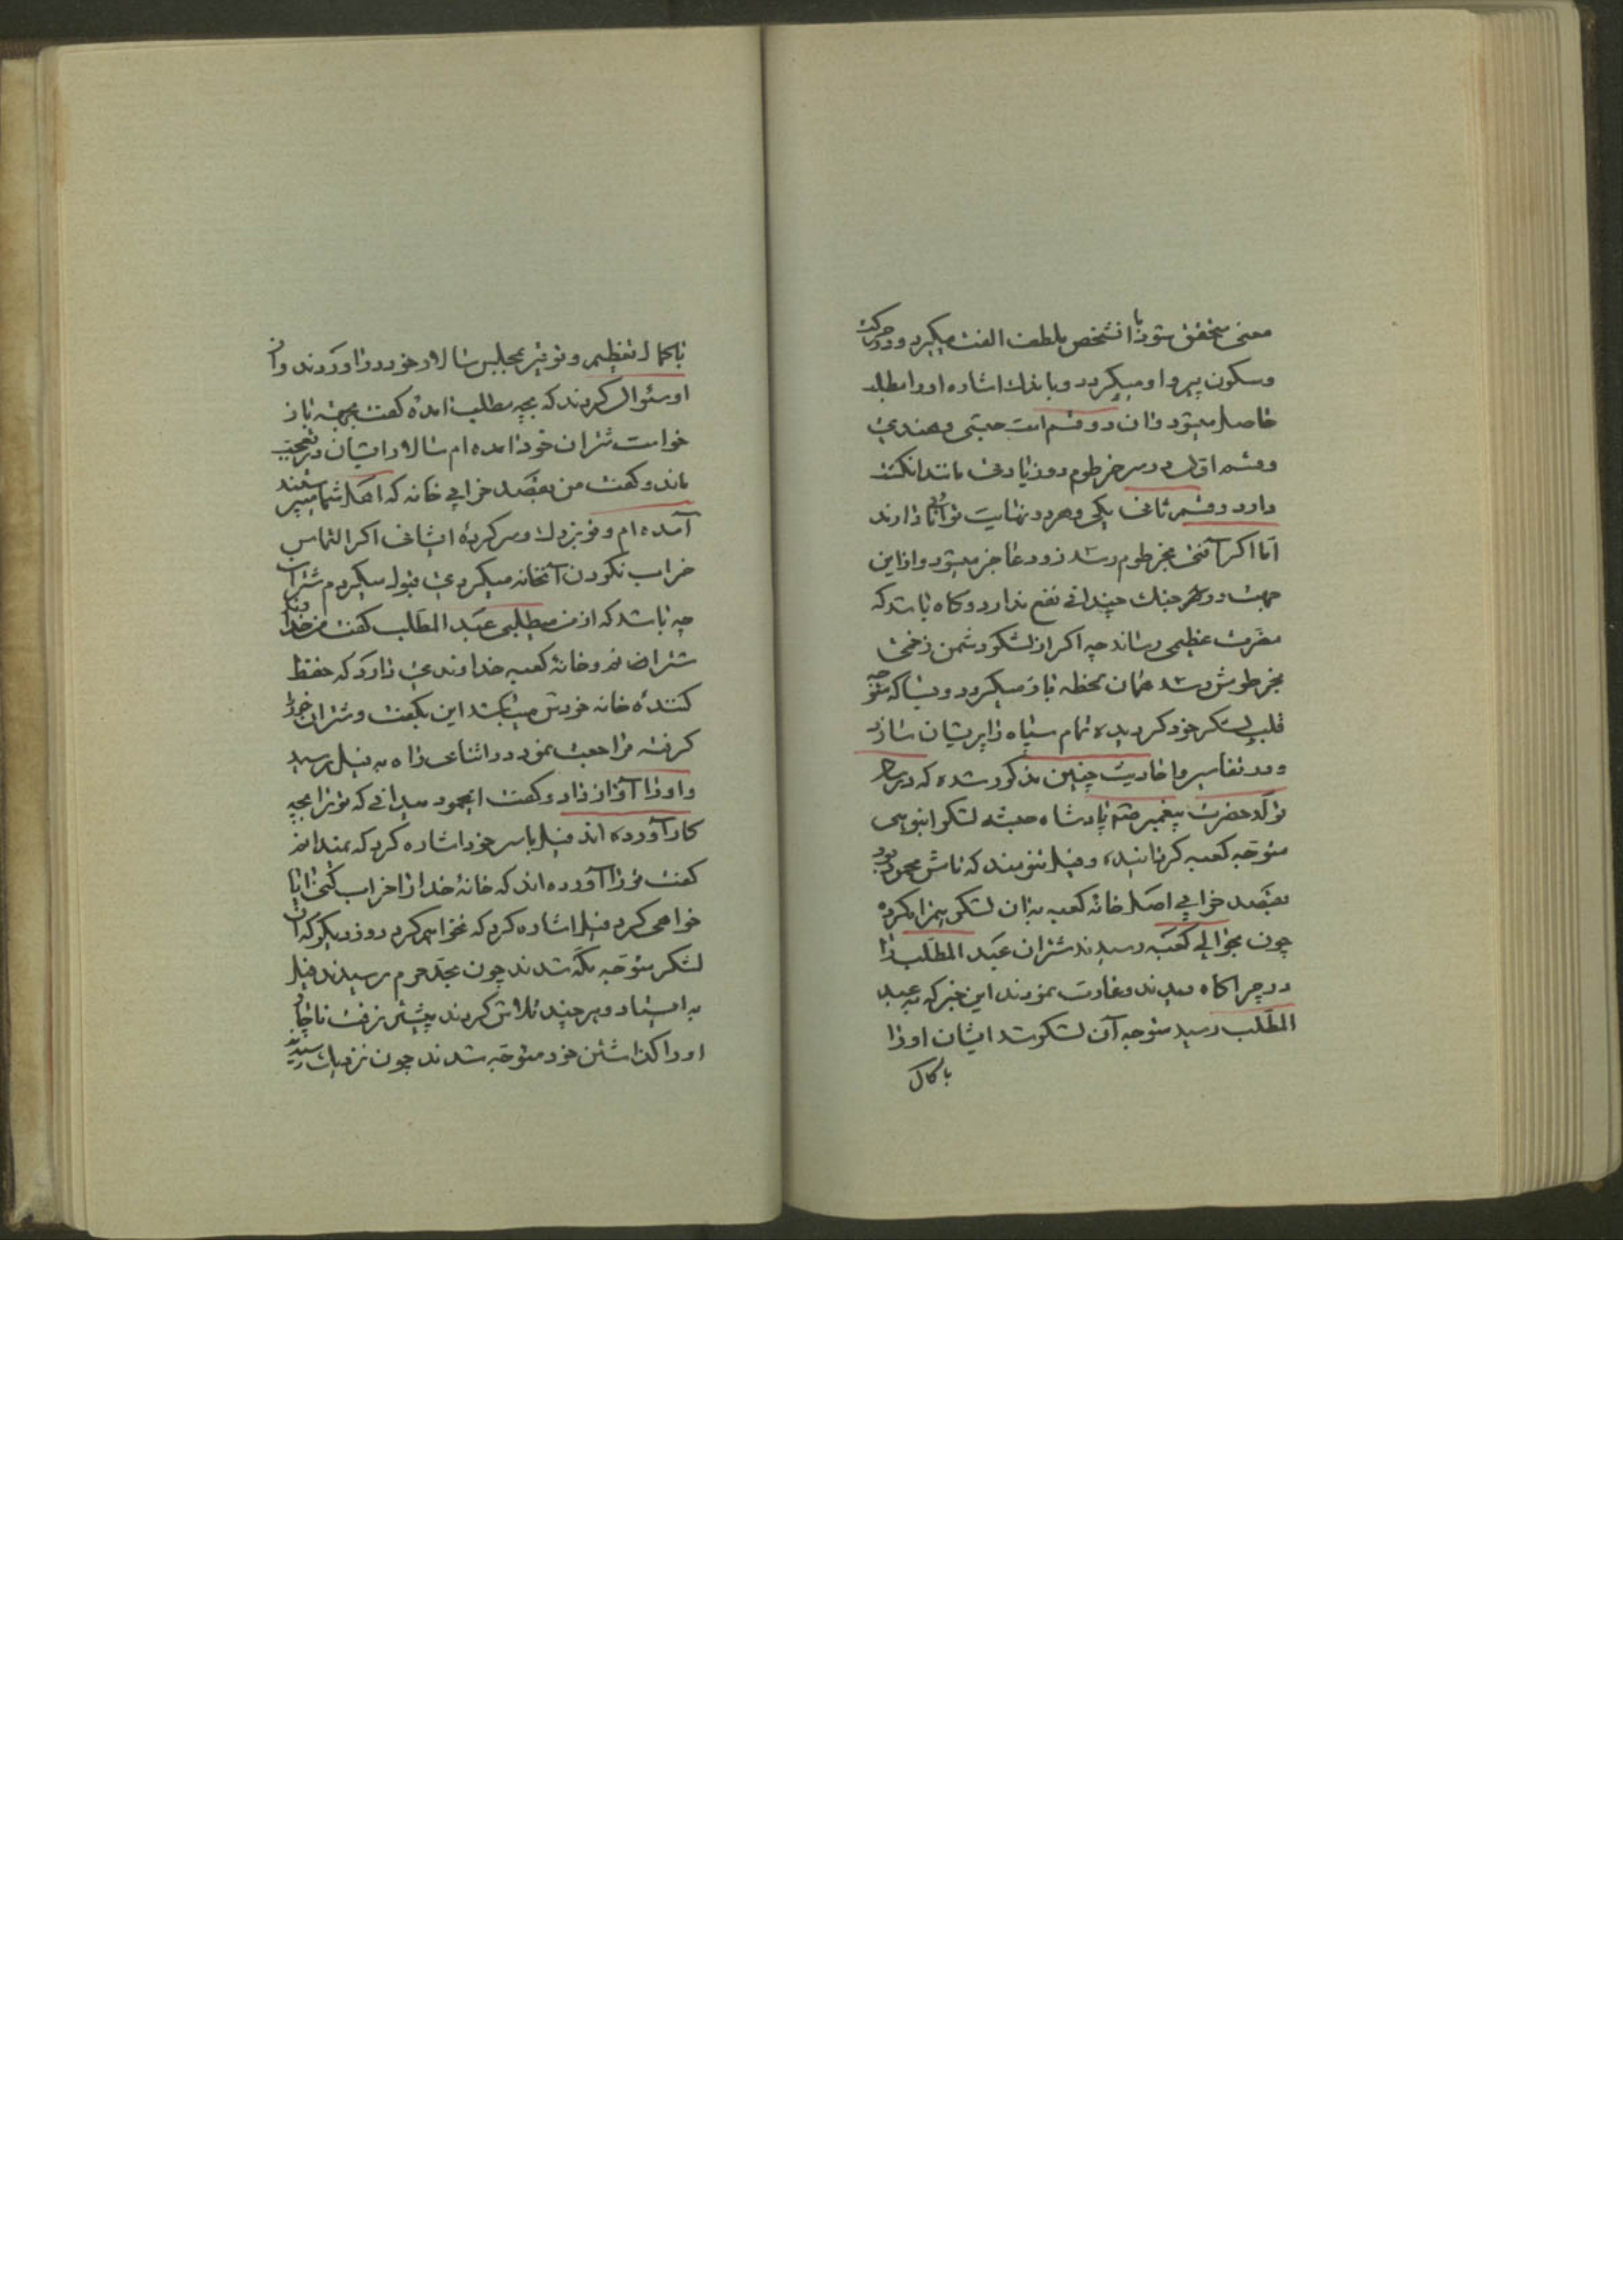 معنی متحقق شود با آنشخص بلطف الفت میگیرد و در حرکت
و سکون پیرو او میگردد و باندك اشاره او را مطلب
حاصل میشود و آن دو قسم است حبشی و هندی
و قسم اول در سر خرطوم دو زیادتی مانند انگشت
دارد و قسم ثانی یکی و هر دو نهایت توانائی دارند
اما اگر آفتی بخرطوم رسد زود عاجز میشود و از این
جهت در جنك چندانی نفع ندارد و گاه باشد که
مضرت عظیمی رساند چه اگر از لشکر دشمن زخمی
بخرطومش رسد همان لحظه باز میگردد و بسا که متوجه
قلب لشکر خود گردیده تمام سپاه را پریشان سازد
و در تفاسیر و احادیث چنین مذکور شده که در سال
تولد حضرت پیغمبر ص پادشاه حبشه لشکر انبوهی
متوجه کعبه گردانیده و فیل تنومند که نامش محمود بود
بقصد خرابی اصل خانه کعبه به آن لشکر همراه کرده
چون بحوالی کعبه رسیدند شتران عبد المطلب را
در چراگاه دیدند و غارت نمودند این خبر که به عبد
المطلب رسید متوجه آن لشکر شد ایشان او را
با کمال
با کمال تعظیم و توقیر بمجلس سالار خود در آوردند و از
او سئوال کردند که بچه مطلب آمده گفت بجهة باز
خواست شتران خود آمده ام سالار ایشان در تعجب
ماند و گفت من بقصد خرابی خانه که اهل شما میپرستند
آمده ام و تو بزرك و سرکرده ایشانی اگر التماس
خراب نکردن آنخانه میکردی قبول میکردم شتران
چه باشد که از من میطلبی عبد المطلب گفت من خداوند
شترانم و خانه کعبه خداوندی دارد که حفظ
کننده خانه خودش میباشد این بگفت و شتران خود را
گرفته مراجعت نمود در اثنای راه به فیل رسید
و او را آواز داد و گفت ایمحمود میدانی که تو را بچه
کار آورده اند فیل با سر خود اشاره کرد که نمیدانم
گفت تو را آورده اند که خانه خدا را خراب کنی آیا
خواهی کرد فیل اشاره کرد که نخواهم کرد روز دیگر که آن
لشکر متوجه مکه شدند چون بحد حرم رسیدند فیل
به ایستاد و هر چند تلاش کردند پیشتر نرفت ناچار
او را گذاشتن خود متوجه شدند چون نزدیك رسیدند